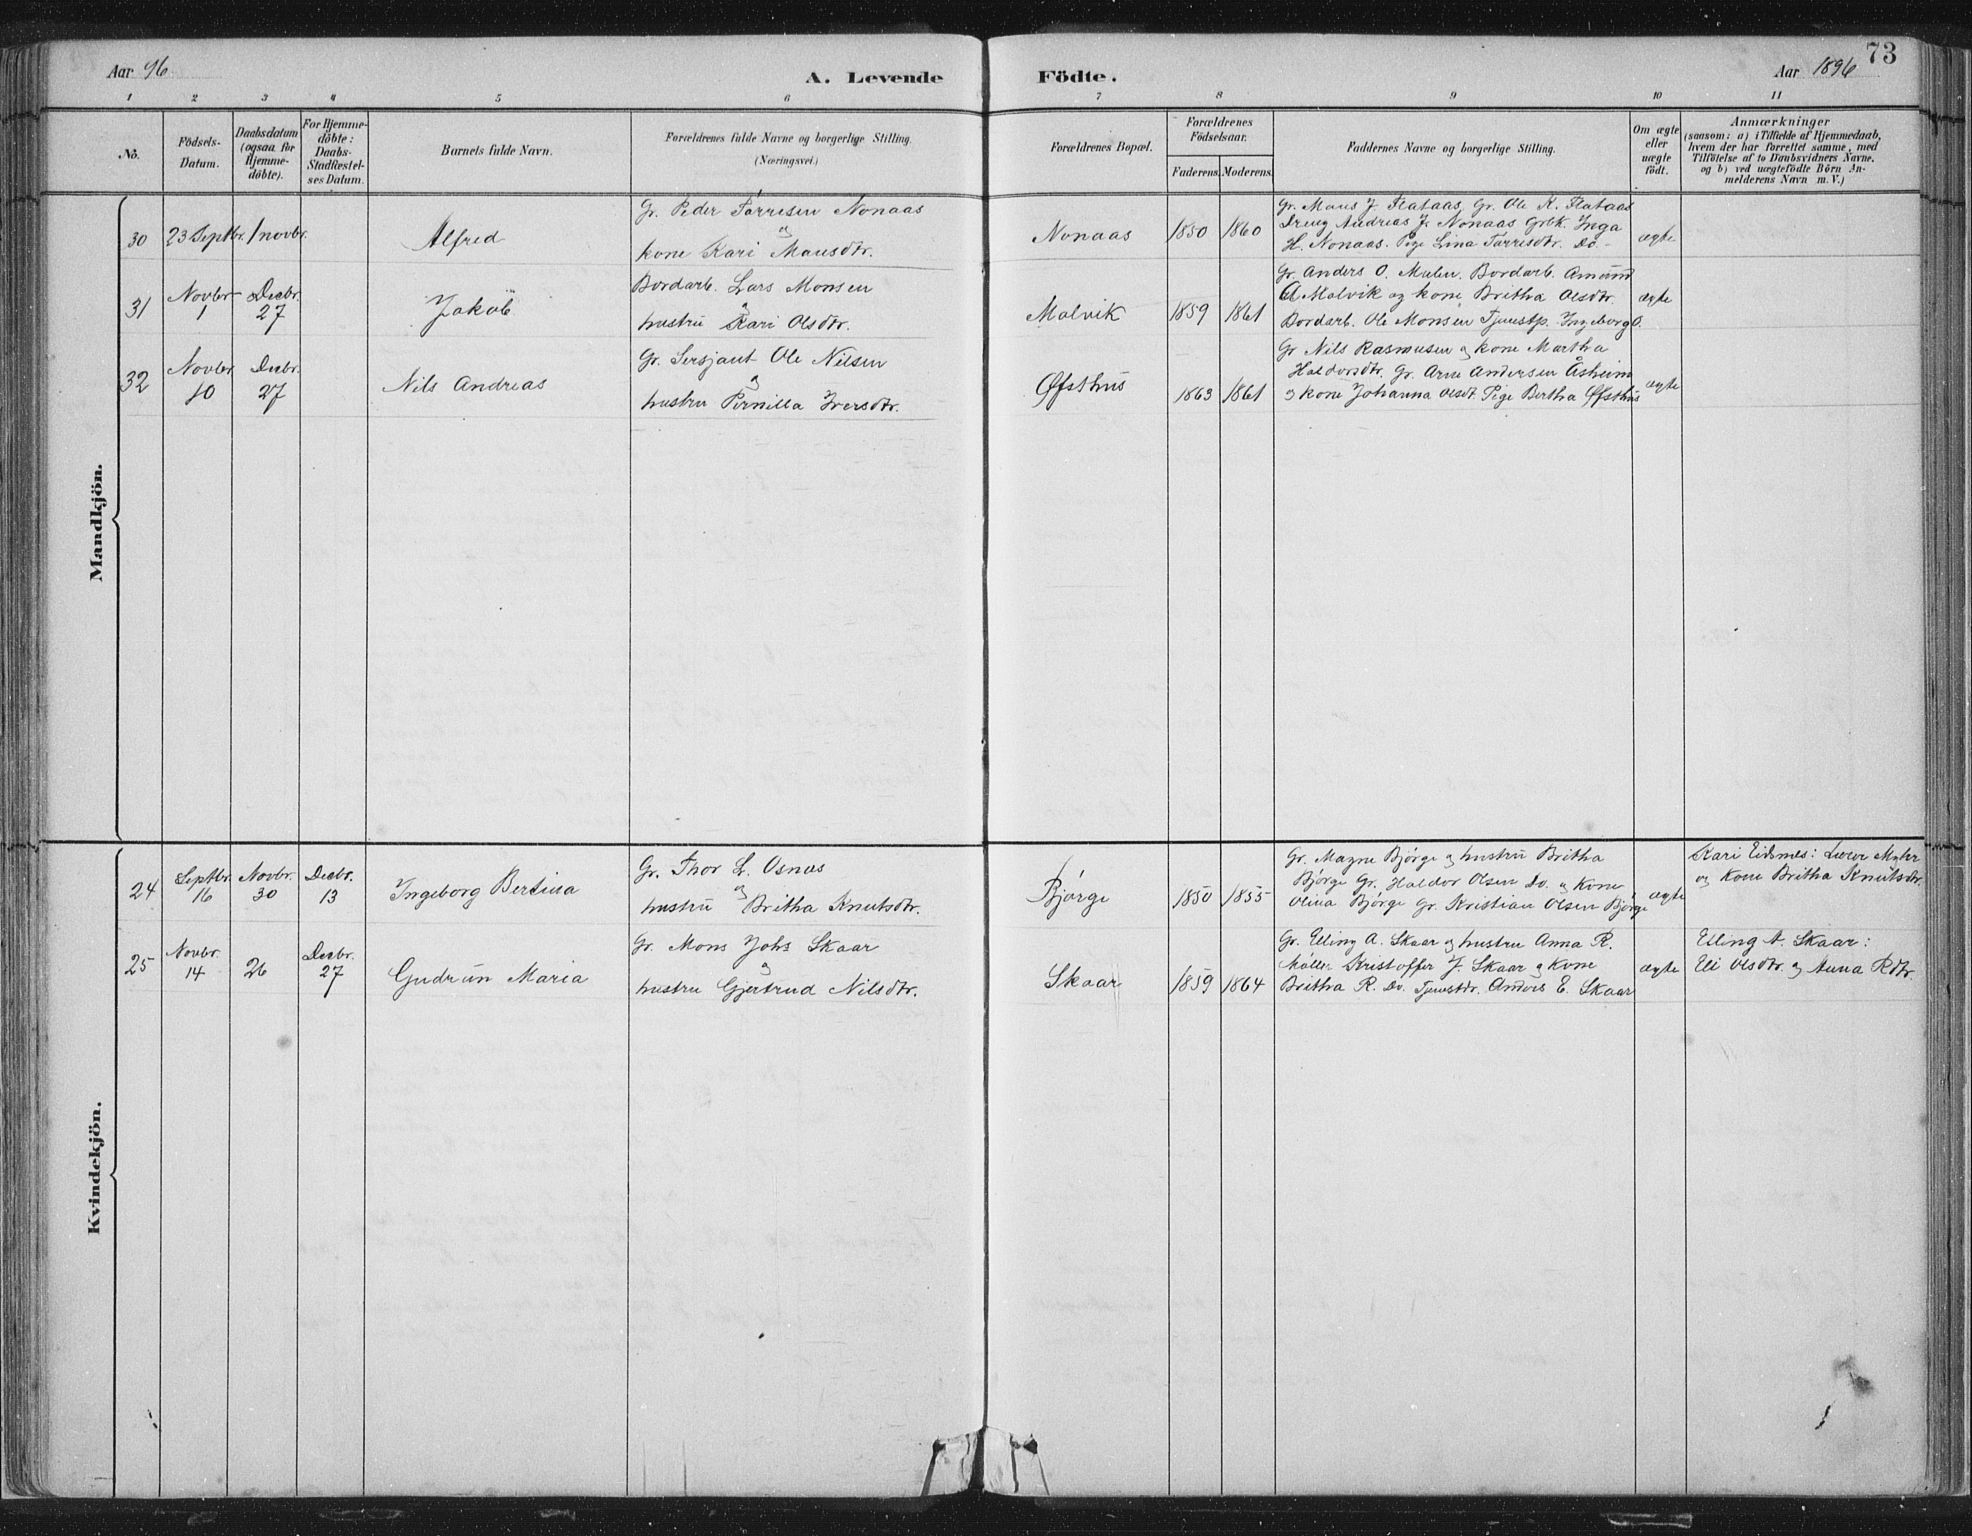 73
Aar 96
A. Levende Födte.
Aar 1896
1 2 3 4 5 6 7 8 9 10 11
No.
Födsels-
Datum.
Daabsdatum
(ogsaa for
Hjemme-
döbte).
For Hjemme-
döbte:
Daabs-
Stadfæstel-
ses Datum.
Barnets fulde Navn.
Forældrenes fulde Navne og borgerlige Stilling.
(Næringsvei.)
Forældrenes Bopæl.
Forældrenes
Födselsaar.
Faderens. Moderens.
Faddernes Navne og borgerlige Stilling.
Om ægte
eller
uægte
födt.
Anmærkninger
(saasom: a) i Tilfælde af Hjemmedaab,
hvem der har forrettet samme, med
Tilföielse af to Daabsvidners Navne,
og b) ved uægtefödte Börn An-
melderens Navn m. V.)
Mandkjön.
30 23 Septbr. 1 novbr.
Alfred
Gr. Peder Torresen Nonaas
og
kone Kari Mausdtr.
Nonaas 1850 1860
Gr. Maus J. Flataas, Gr. Ole K. Flataas
Dreng Andreas J. Nonaas Grbk. Inga
H. Nonaas. Pige Lina Torresdtr. Do.
ægte
31 Novbr 1 Decbr. 27
Jakob
Bordarb. Lars Monsen
og
hustru Kari Olsdtr.
Molvik 1859 1861
Gr. Anders O. Mulen. Bordarb. Amund
A Molvik og kone Britha Olsdtr.
Bordarb. Ole Monsen Tjenestp. Ingeborg O.
ægte
32 Novbr 10 Decbr. 27
Nils Andreas
Gr. Sersjant Ole Nilsen
og
hustru Pernilla Iversdtr.
Øfsthus 1863 1861
Gr Nils Rasmusen og kone Martha
Haldorsdtr. Gr. Arne Andersen Åsheim
og kone Johanna Olsdt. Pige Bertha Øfsthus
ægte
Kvindekjön.
24 Septbr. 16 Novbr. 30 Decbr. 13
Ingeborg Bertina
Gr. Thor L. Osnes
og
hustru Britha Knutsdtr.
Bjørge 1850 1855
Gr. Magne Bjørge og hustru Britha
Bjørge Gr. Haldor Olsen Do. og Kone
Olina Bjørge Gr. Kristian Olsen Bjørge
ægte
Kari Eidsnes: Lærer
og Kone Britha Knutsdtr.
25 Novbr. 14 26 Decbr. 27
Gudrun Maria
Gr. Mons Johs Skaar
og
hustru Gjertrud Nilsdtr.
Skaar 1859 1864
Gr. Elling A. Skaar og hustru Anna R.
Møller Kristoffer J. Skaar og Kone
Britha R. Do. Tjenestdr. Anders E. Skaar
ægte
Elling A. Skaar:
Eli Olsdtr. og Anna Rdtr.